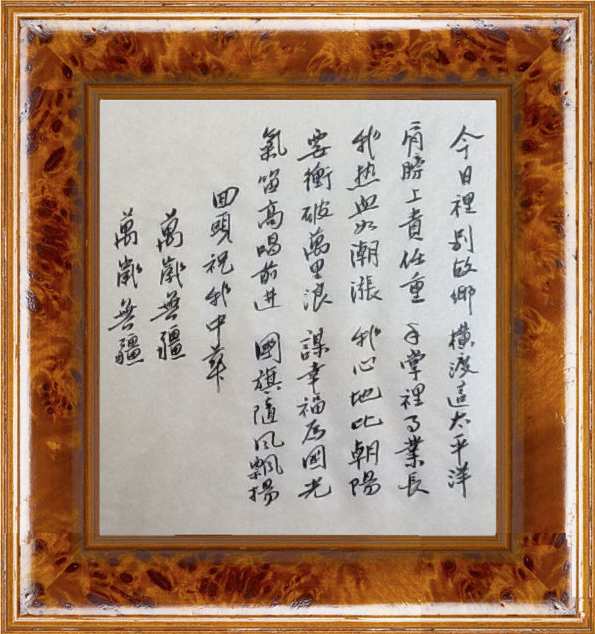 今日裡別故鄉 橫渡這太平洋
肩膀上責任重 手掌裡事業長
我热血如潮漲 我心地比朝陽
要衝破萬里浪 謀幸福為國光
氣笛高唱前进 國旗隨风飄揚
回頭祝我中華
萬歲無疆
萬歲無疆